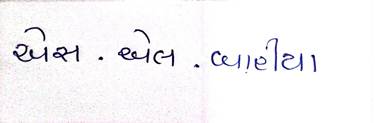 એસ . એલ . બારીયા